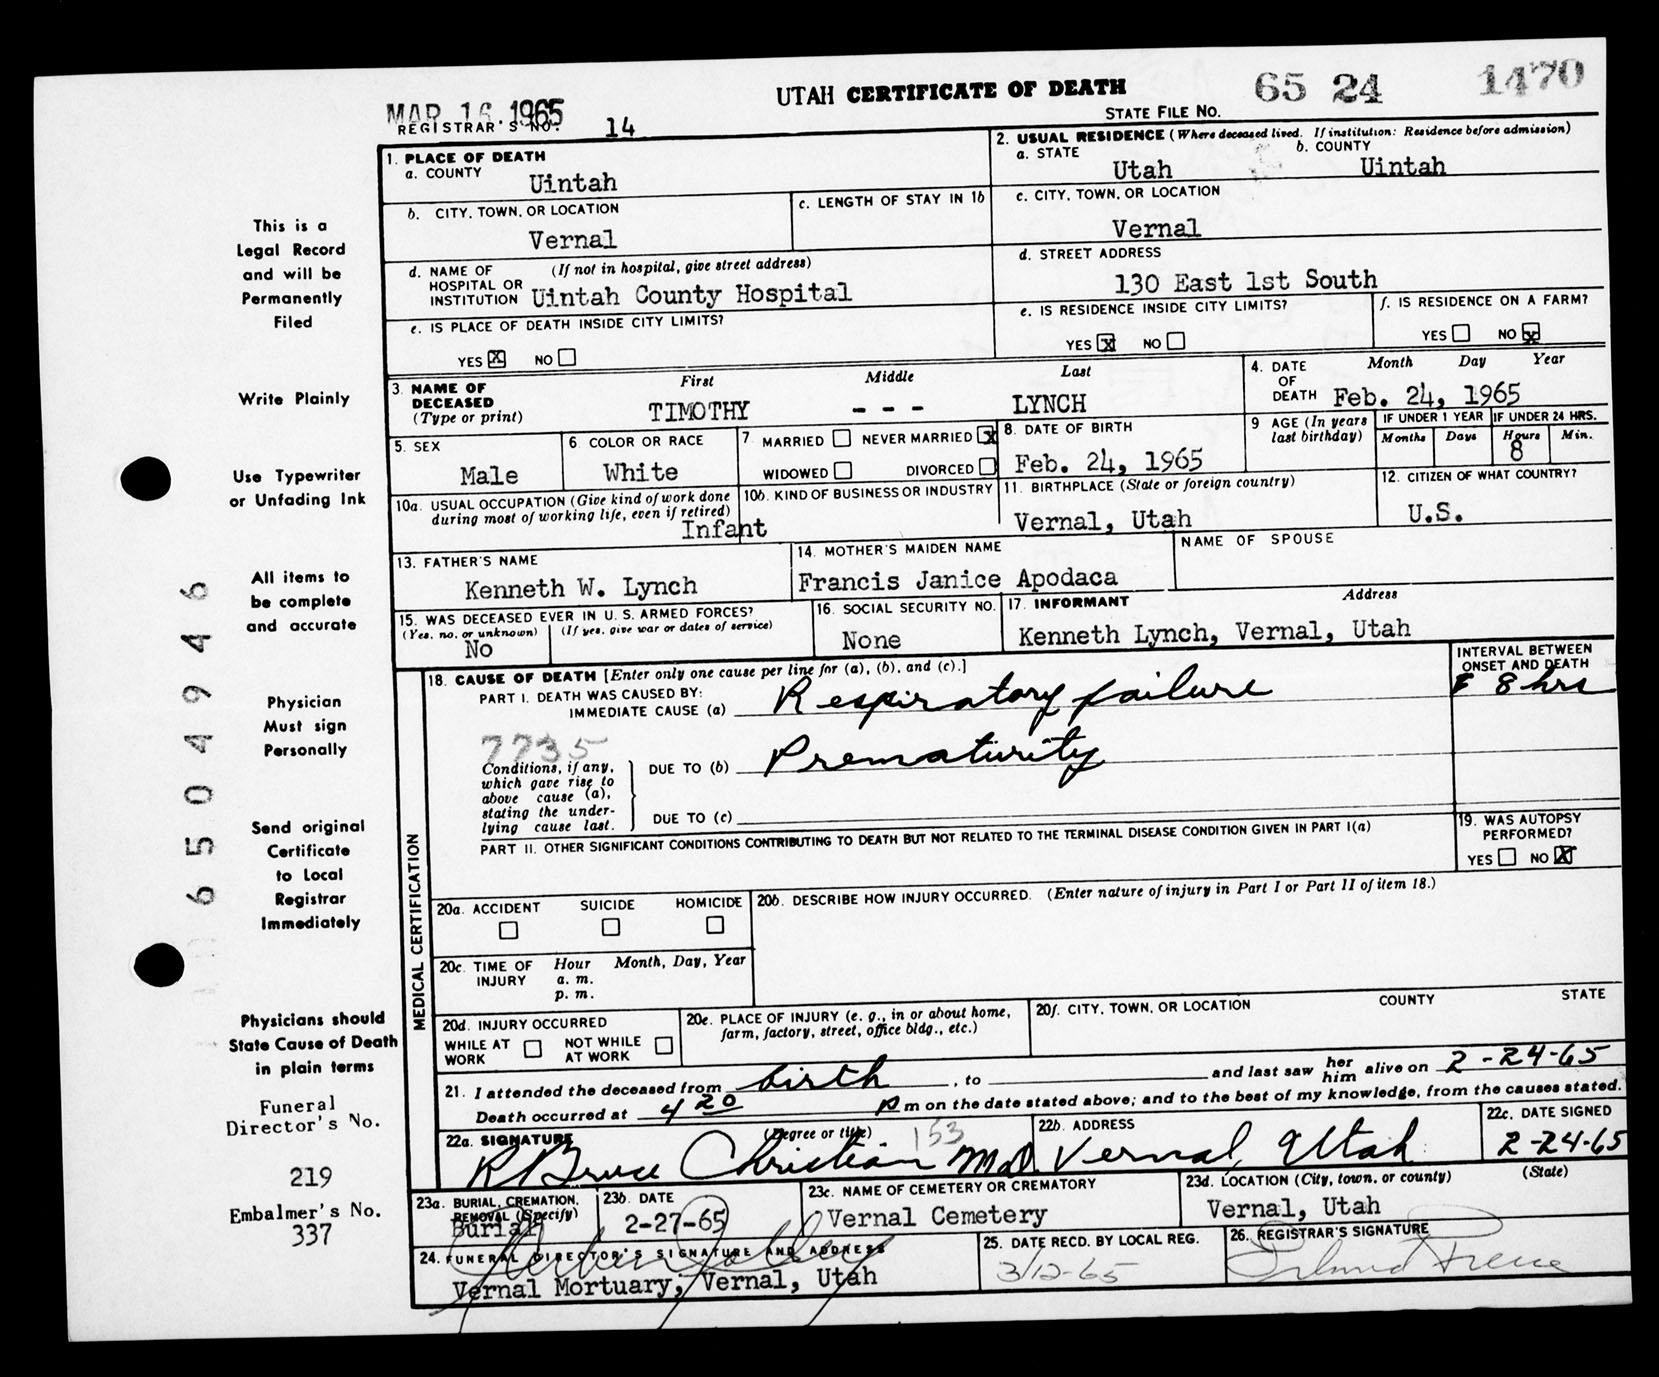 UTAH CERTIFICATE OF DEATH
65 24 1470
MAR 16 1965
STATE FILE NO.
REGISTRAR'S NO. 14
1. PLACE OF DEATH
a. COUNTY Uintah
2. USUAL RESIDENCE (Where deceased lived. If institution: Residence before admission)
a. STATE Utah b. COUNTY Uintah
b. CITY, TOWN, OR LOCATION Vernal
c. LENGTH OF STAY IN 1b
c. CITY, TOWN, OR LOCATION Vernal
d. NAME OF HOSPITAL OR INSTITUTION (If not in hospital, give street address) Uintah County Hospital
d. STREET ADDRESS 130 East 1st South
e. IS PLACE OF DEATH INSIDE CITY LIMITS?
YES x NO
e. IS RESIDENCE INSIDE CITY LIMITS?
YES x NO
f. IS RESIDENCE ON A FARM?
YES NO x
3. NAME OF DECEASED (Type or print)
First Middle Last
TIMOTHY - - - LYNCH
4. DATE OF DEATH Month Day Year
Feb. 24, 1965
5. SEX Male
6. COLOR OR RACE White
7. MARRIED NEVER MARRIED x
WIDOWED DIVORCED
8. DATE OF BIRTH Feb. 24, 1965
9 AGE (In years last birthday)
IF UNDER 1 YEAR IF UNDER 24 HRS.
Months Days Hours Min.
8
10a. USUAL OCCUPATION (Give kind of work done during most of working life, even if retired) Infant
10b. KIND OF BUSINESS OR INDUSTRY
11. BIRTHPLACE (State or foreign country) Vernal, Utah
12. CITIZEN OF WHAT COUNTRY? U.S.
13. FATHER'S NAME Kenneth W. Lynch
14. MOTHER'S MAIDEN NAME Francis Janice Apodaca
NAME OF SPOUSE
15. WAS DECEASED EVER IN U. S. ARMED FORCES?
(Yes, no, or unknown) (If yes, give war or dates of service)
No
16. SOCIAL SECURITY NO. None
17. INFORMANT Address
Kenneth Lynch, Vernal, Utah
MEDICAL CERTIFICATION
18. CAUSE OF DEATH [Enter only one cause per line for (a), (b), and (c).]
INTERVAL BETWEEN ONSET AND DEATH
PART I. DEATH WAS CAUSED BY:
IMMEDIATE CAUSE (a) Respiratory failure 8 hrs
7735
Conditions, if any, which gave rise to above cause (a), stating the underlying cause last.
DUE TO (b) Prematurity
DUE TO (c)
PART II. OTHER SIGNIFICANT CONDITIONS CONTRIBUTING TO DEATH BUT NOT RELATED TO THE TERMINAL DISEASE CONDITION GIVEN IN PART I(a)
19. WAS AUTOPSY PERFORMED?
YES NO X
20a. ACCIDENT SUICIDE HOMICIDE
20b. DESCRIBE HOW INJURY OCCURRED. (Enter nature of injury in Part I or Part II of item 18.)
20c. TIME OF INJURY Hour Month, Day, Year
a. m.
p. m.
20d. INJURY OCCURRED
WHILE AT WORK NOT WHILE AT WORK
20e. PLACE OF INJURY (e. g., in or about home, farm, factory, street, office bldg., etc.)
20f. CITY, TOWN, OR LOCATION COUNTY STATE
21. I attended the deceased from birth, to and last saw her him alive on 2-24-65
Death occurred at 4 20 p m on the date stated above; and to the best of my knowledge, from the causes stated.
22a. SIGNATURE (Degree or title) 153
R Bruce Christian M.D.
22b. ADDRESS Vernal, Utah
22c. DATE SIGNED 2-24-65
23a. BURIAL, CREMATION, REMOVAL (Specify) Burial
23b. DATE 2-27-65
23c. NAME OF CEMETERY OR CREMATORY Vernal Cemetery
23d. LOCATION (City, town, or county) (State)
Vernal, Utah
24. FUNERAL DIRECTOR'S SIGNATURE AND ADDRESS
Vernal Mortuary, Vernal, Utah
25. DATE RECD. BY LOCAL REG. 3/12-65
26. REGISTRAR'S SIGNATURE
This is a
Legal Record
and will be
Permanently
Filed
Write Plainly
Use Typewriter
or Unfading Ink
All items to
be complete
and accurate
Physician
Must sign
Personally
Send original
Certificate
to Local
Registrar
Immediately
Physicians should
State Cause of Death
in plain terms
Funeral
Director's No.
219
Embalmer's No.
337
6504946